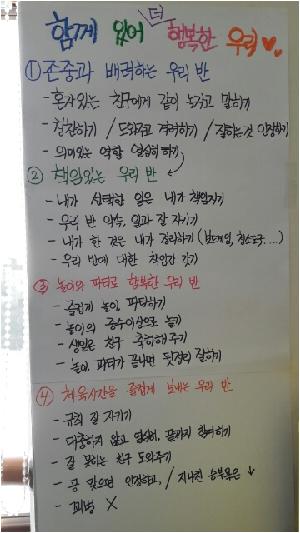 함께 있어 더 행복한 우리
① 존중과 배려하는 우리 반
- 혼자있는 친구에게 같이 놀자고 말하기
- 칭찬하기 / 도와주고 격려하기 / 잘하는것 인정하기
- 의미있는 역할 열심히 하기
② 책임있는 우리 반
- 내가 선택한 일은 내가 책임지기
- 우리 반 약속, 일과 잘 지키기
- 내가 한 것은 내가 정리하기 (보드게임, 청소도구....)
- 우리 반에 대한 책임감 갖기
③ 놀이와 파티로 행복한 우리 반
- 즐겁게 놀이, 파티하기
- 놀이의 으로 놀기
- 생일은 친구 축하해주기
- 놀이, 파티가 끝나면 뒷정리 잘하기
④ 체육시간을 즐겁게 보내는 우리 반
- 규칙 잘 지키기
- 다툼하지 않고 열심히, 끝까지 참여하기
- 잘 못하는 친구 도와주기
- 공 맞으면 인정하고, / 지나친 승부욕은 ↓
- 꾀병 X